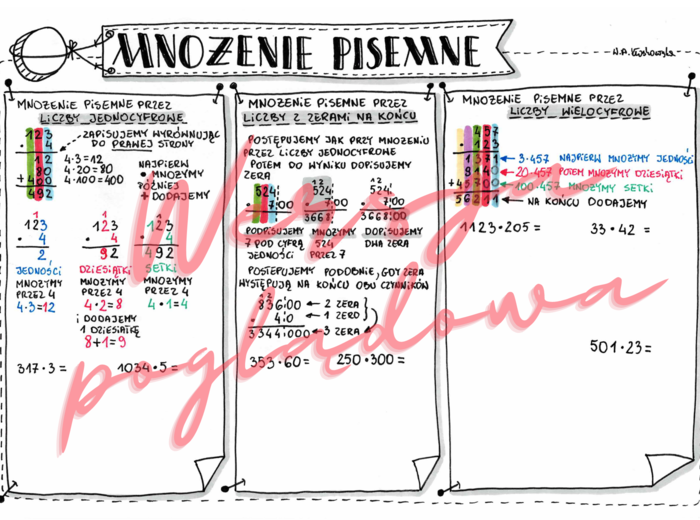 MNOŻENIE PISEMNE
MNOŻENIE PISEMNE PRZEZ
LICZBY JEDNOCYFROWE
123
• 4
12
80
+400
492
ZAPISUJEMY WYRÓWNUJĄC
DO PRAWEJ STRONY
4·3=12
4·20=80
4·100=400
NAJPIERW
• MNOŻYMY
PÓŹNIEJ
+ DODAJEMY
1
123
• 4
2
JEDNOŚCI
MNOŻYMY
PRZEZ 4
4·3=12
1
123
• 4
92
DZIESIĄTKI
MNOŻYMY
PRZEZ 4
4·2=8
I DODAJEMY
1 DZIESIĄTKĘ
8+1=9
123
• 4
492
SETKI
MNOŻYMY
PRZEZ 4
4·1=4
317·3=
1034·5=
MNOŻENIE PISEMNE PRZEZ
LICZBY Z ZERAMI NA KOŃCU
POSTĘPUJEMY JAK PRZY MNOŻENIU
PRZEZ LICZBY JEDNOCYFROWE
POTEM DO WYNIKU DOPISUJEMY
ZERA
524
• 7:00
PODPISUJEMY
7 POD CYFRĄ
JEDNOŚCI
12
524
• 7:00
3668
MNOŻYMY
524
PRZEZ 7
524
• 7:00
3668:00
DOPISUJEMY
DWA ZERA
POSTĘPUJEMY PODOBNIE, GDY ZERA
WYSTĘPUJĄ NA KOŃCU OBU CZYNNIKÓW
836:00 ← 2 ZERA
• 4:0 ← 1 ZERO
3344:000 ← 3 ZERA
353·60=
250·300=
MNOŻENIE PISEMNE PRZEZ
LICZBY WIELOCYFROWE
457
• 123
1371
9140
+45700
56211
← 3·457 NAJPIERW MNOŻYMY JEDNOŚCI
← 20·457 POTEM MNOŻYMY DZIESIĄTKI
← 100·457 MNOŻYMY SETKI
← NA KOŃCU DODAJEMY
1123·205=
33·42=
501·23=
Wersja
poglądowa